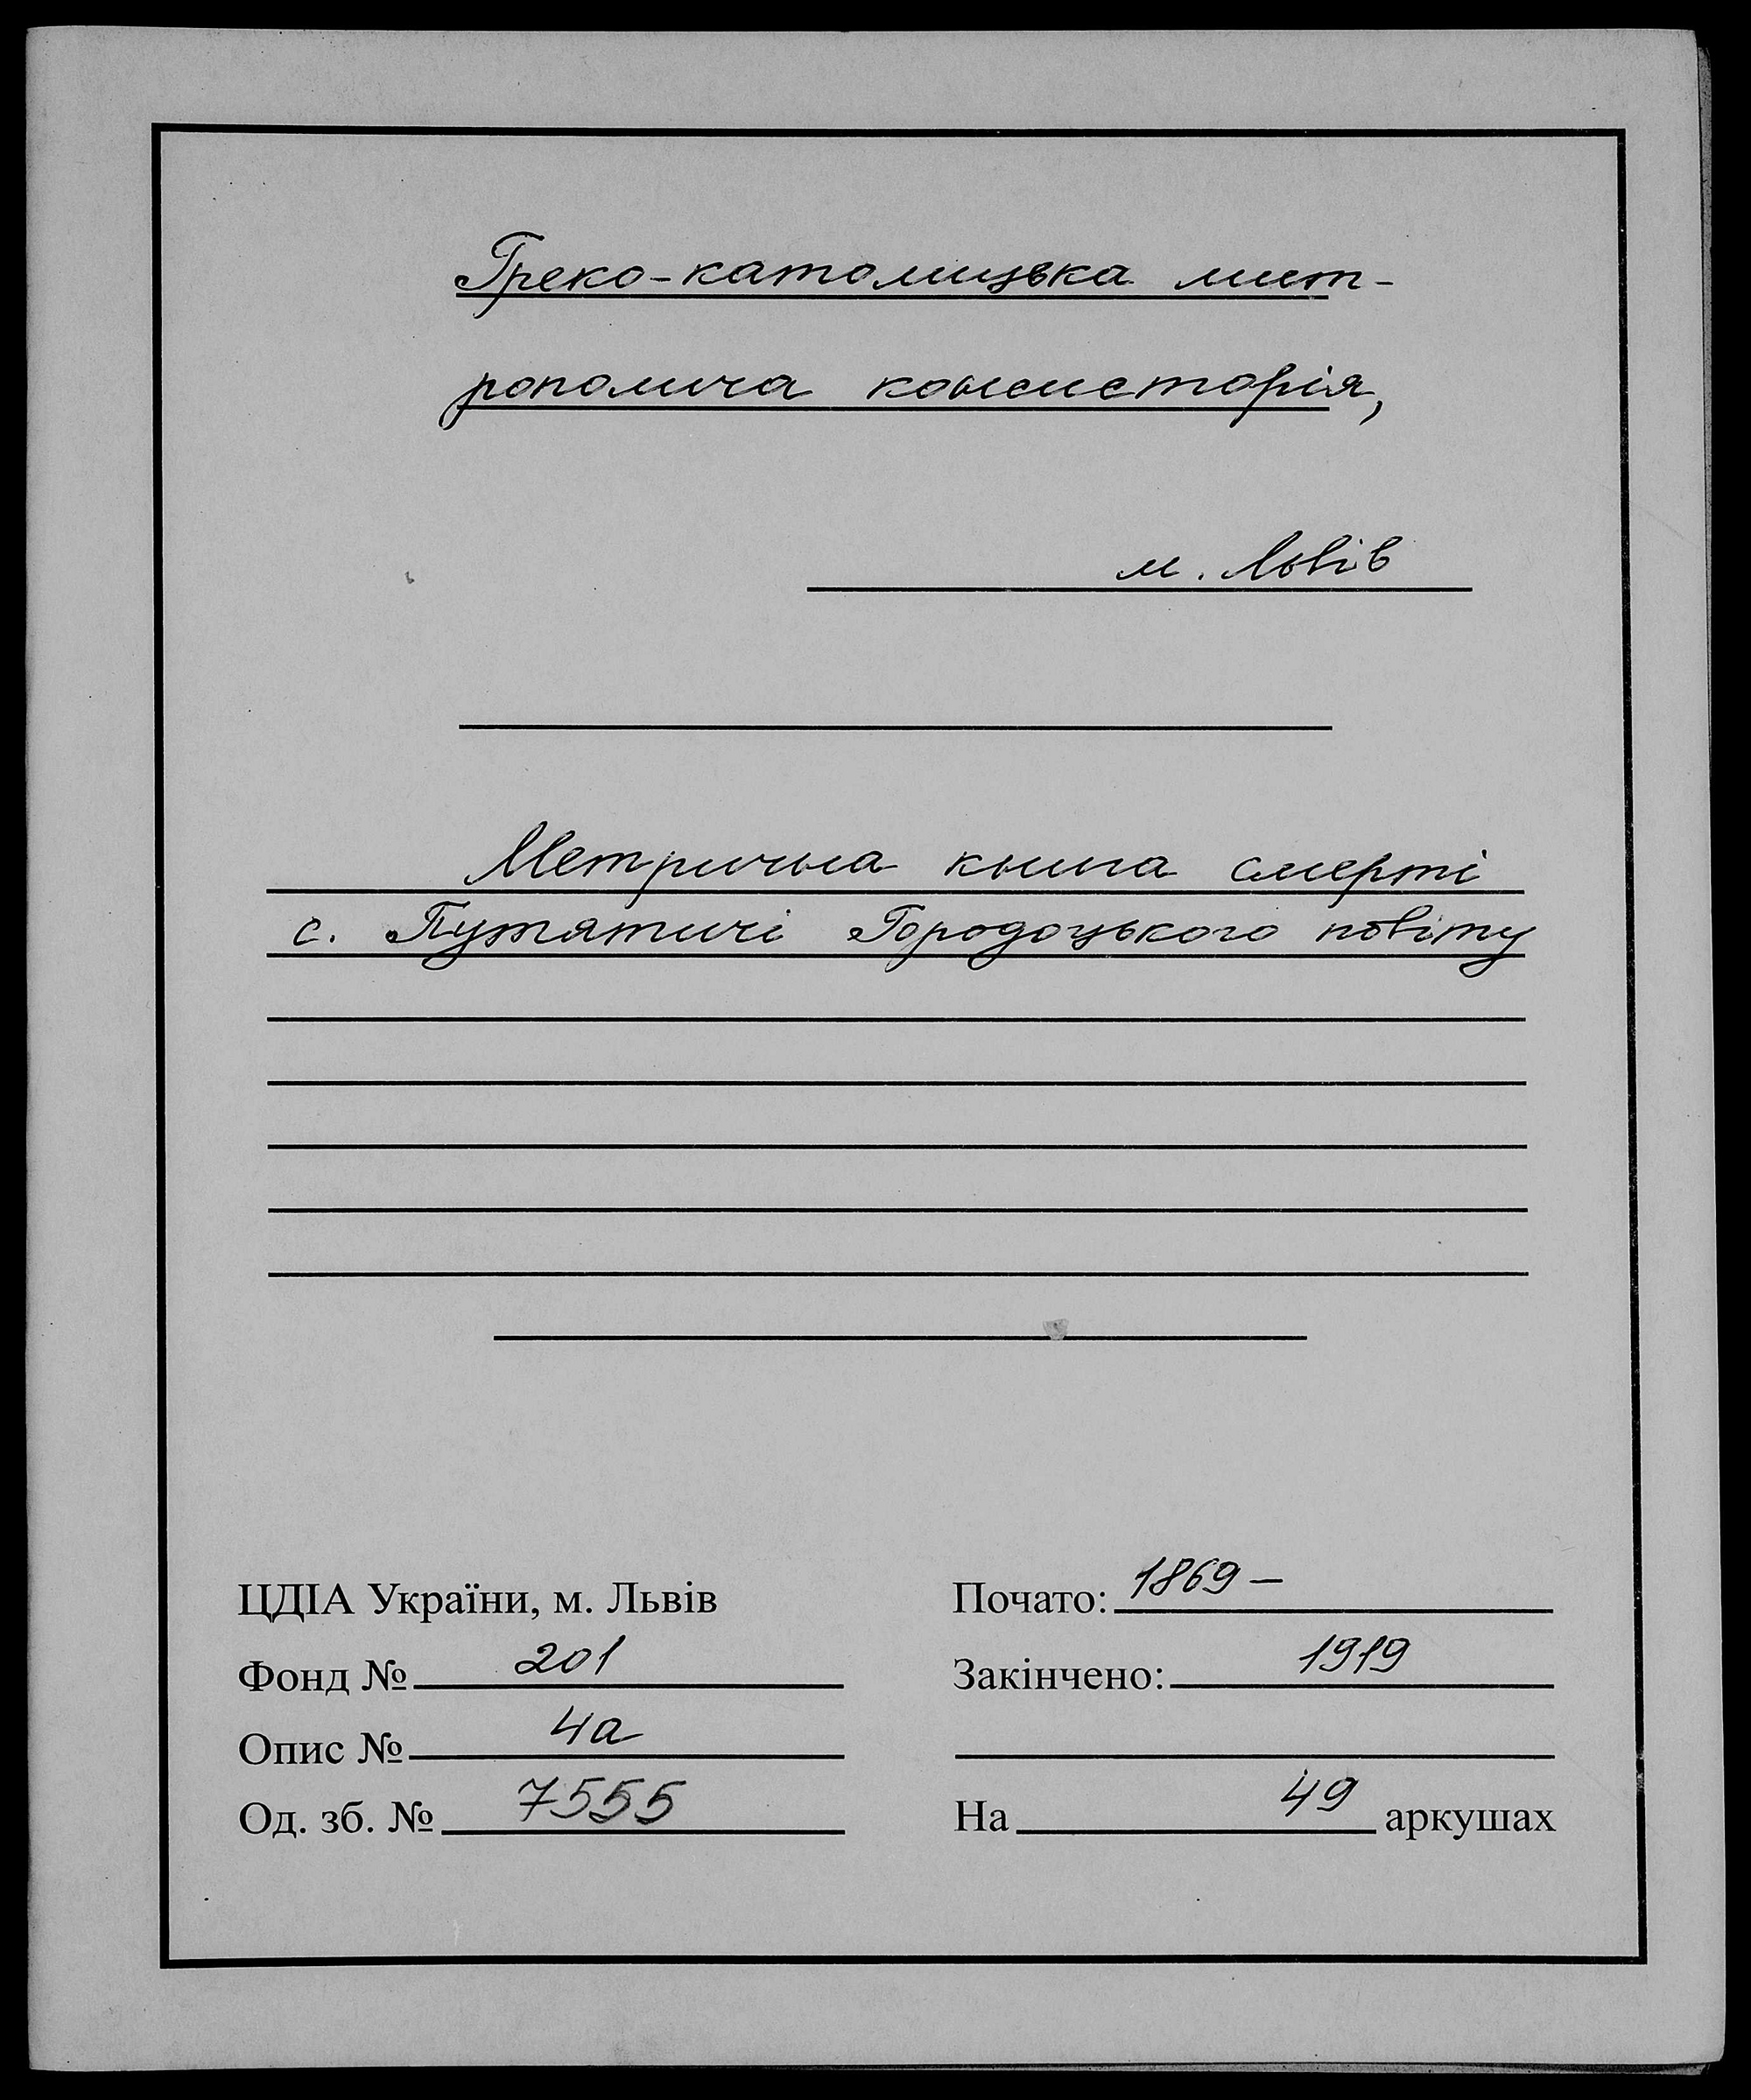 Греко-католицька мит-
рополича консисторія,
м. Львів
Метрична книга смерті
с. Путятичі Городоцького повіту
ЦДІА України, м. Львів
Фонд № 201
Опис № 4а
Од. зб. № 7555
Почато: 1869 –
Закінчено: 1919
На 49 аркушах